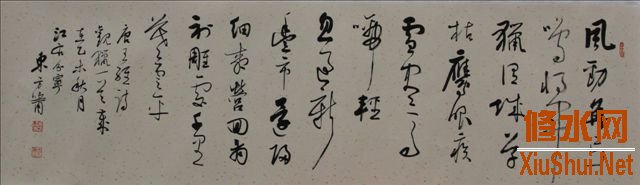 風勁角弓
鳴將軍
獵渭城草
枯鷹眼疾
雪盡馬
蹄輕
忽過新
豐市還歸
細柳營回看
射雕處千里
暮雲平
唐王維詩
觀獵一首
乙未秋月
江右分寧
東方
修水网
XiuShui.Net